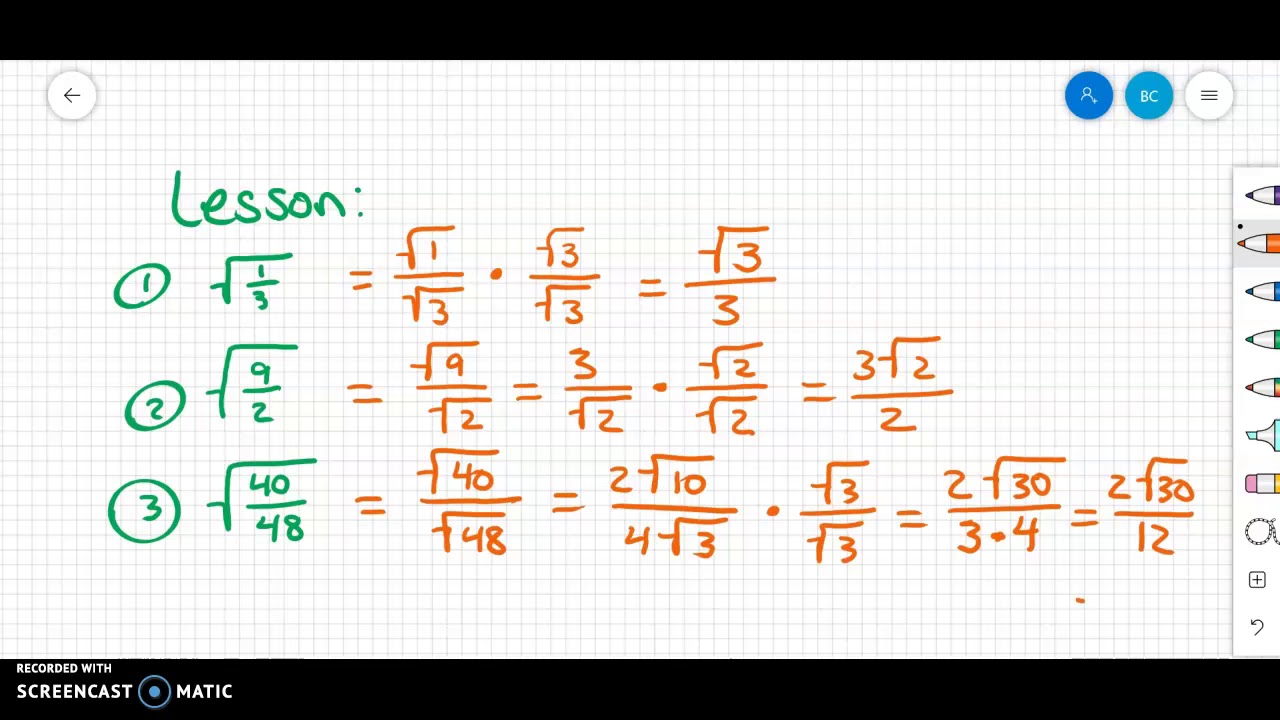 BC
Lesson:
① √(1/3) = √1/√3 · √3/√3 = √3/3
② √(9/2) = √9/√2 = 3/√2 · √2/√2 = 3√2/2
③ √(40/48) = √40/√48 = 2√10/4√3 · √3/√3 = 2√30/3·4 = 2√30/12
RECORDED WITH
SCREENCAST MATIC